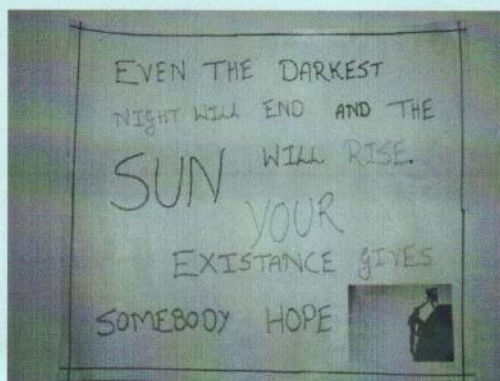 EVEN THE DARKEST
NIGHT WILL END AND THE
SUN WILL RISE.
YOUR
EXISTANCE GIVES
SOMEBODY HOPE